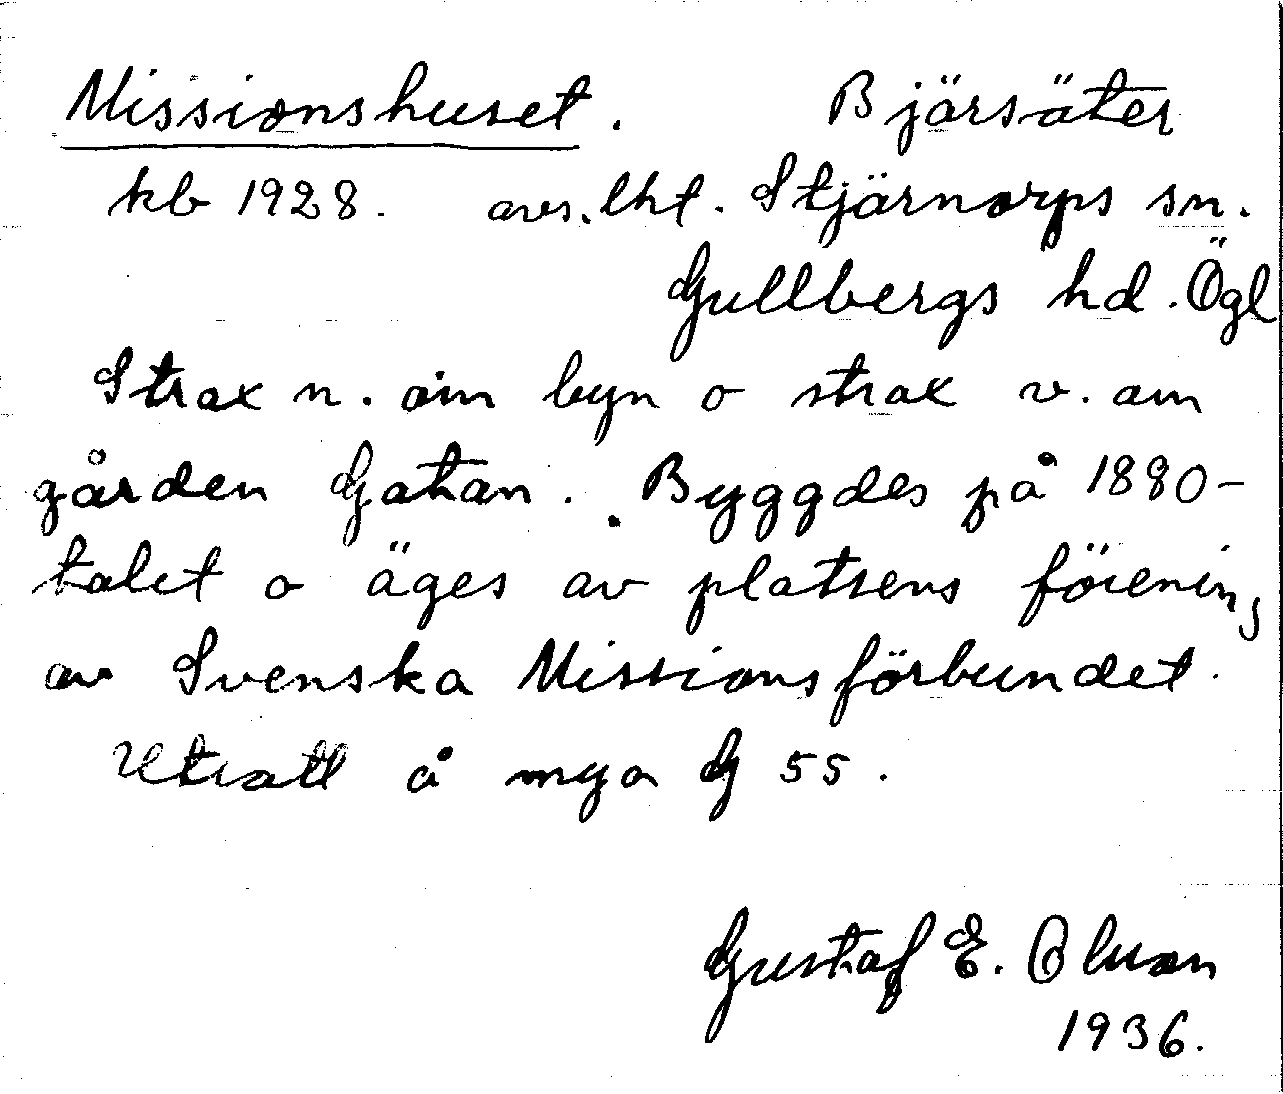 Missionshuset. Bjärsäter
kb 1928. avs. lht. Stjärnorps sn.
Gullbergs hd. Ögl
Strax n. om byn o strax v. om
gården Gatan. Byggdes på 1880-
talet o äges av platsens förening
av Svenska Missionsförbundet.
Utsatt å mya G 55.
Gustaf E. Olsson
1936.